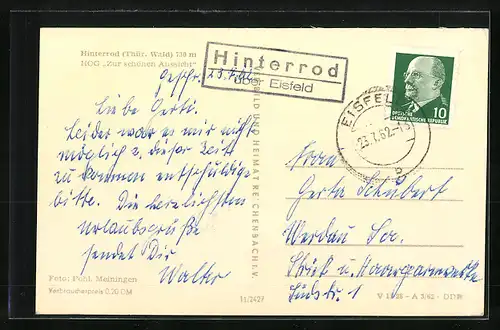 Hinterrod (Thür. Wald) 730 m
HOG „Zur schönen Aussicht"
Hinterrod
über Eisfeld
EISFELD
23.7.62-1
b
DEUTSCHE
DEMOKRATISCHE REPUBLIK
10
Geschr. 23.7.62
Liebe Gerti.
Leider war es mir nicht
möglich z. dieser Zeit
zu kommen entschuldige
bitte. Die herzlichsten
Urlaubsgrüße
sendet Dir
Walter
BILD UND HEIMAT REICHENBACH i. V.
Frau
Gerta Schubert
Werdau Sa.
Strick u. Haargarnwerke
Südstr. 1
Foto: Pohl, Meiningen
Verbraucherpreis 0,20 DM
11/2427
DDR